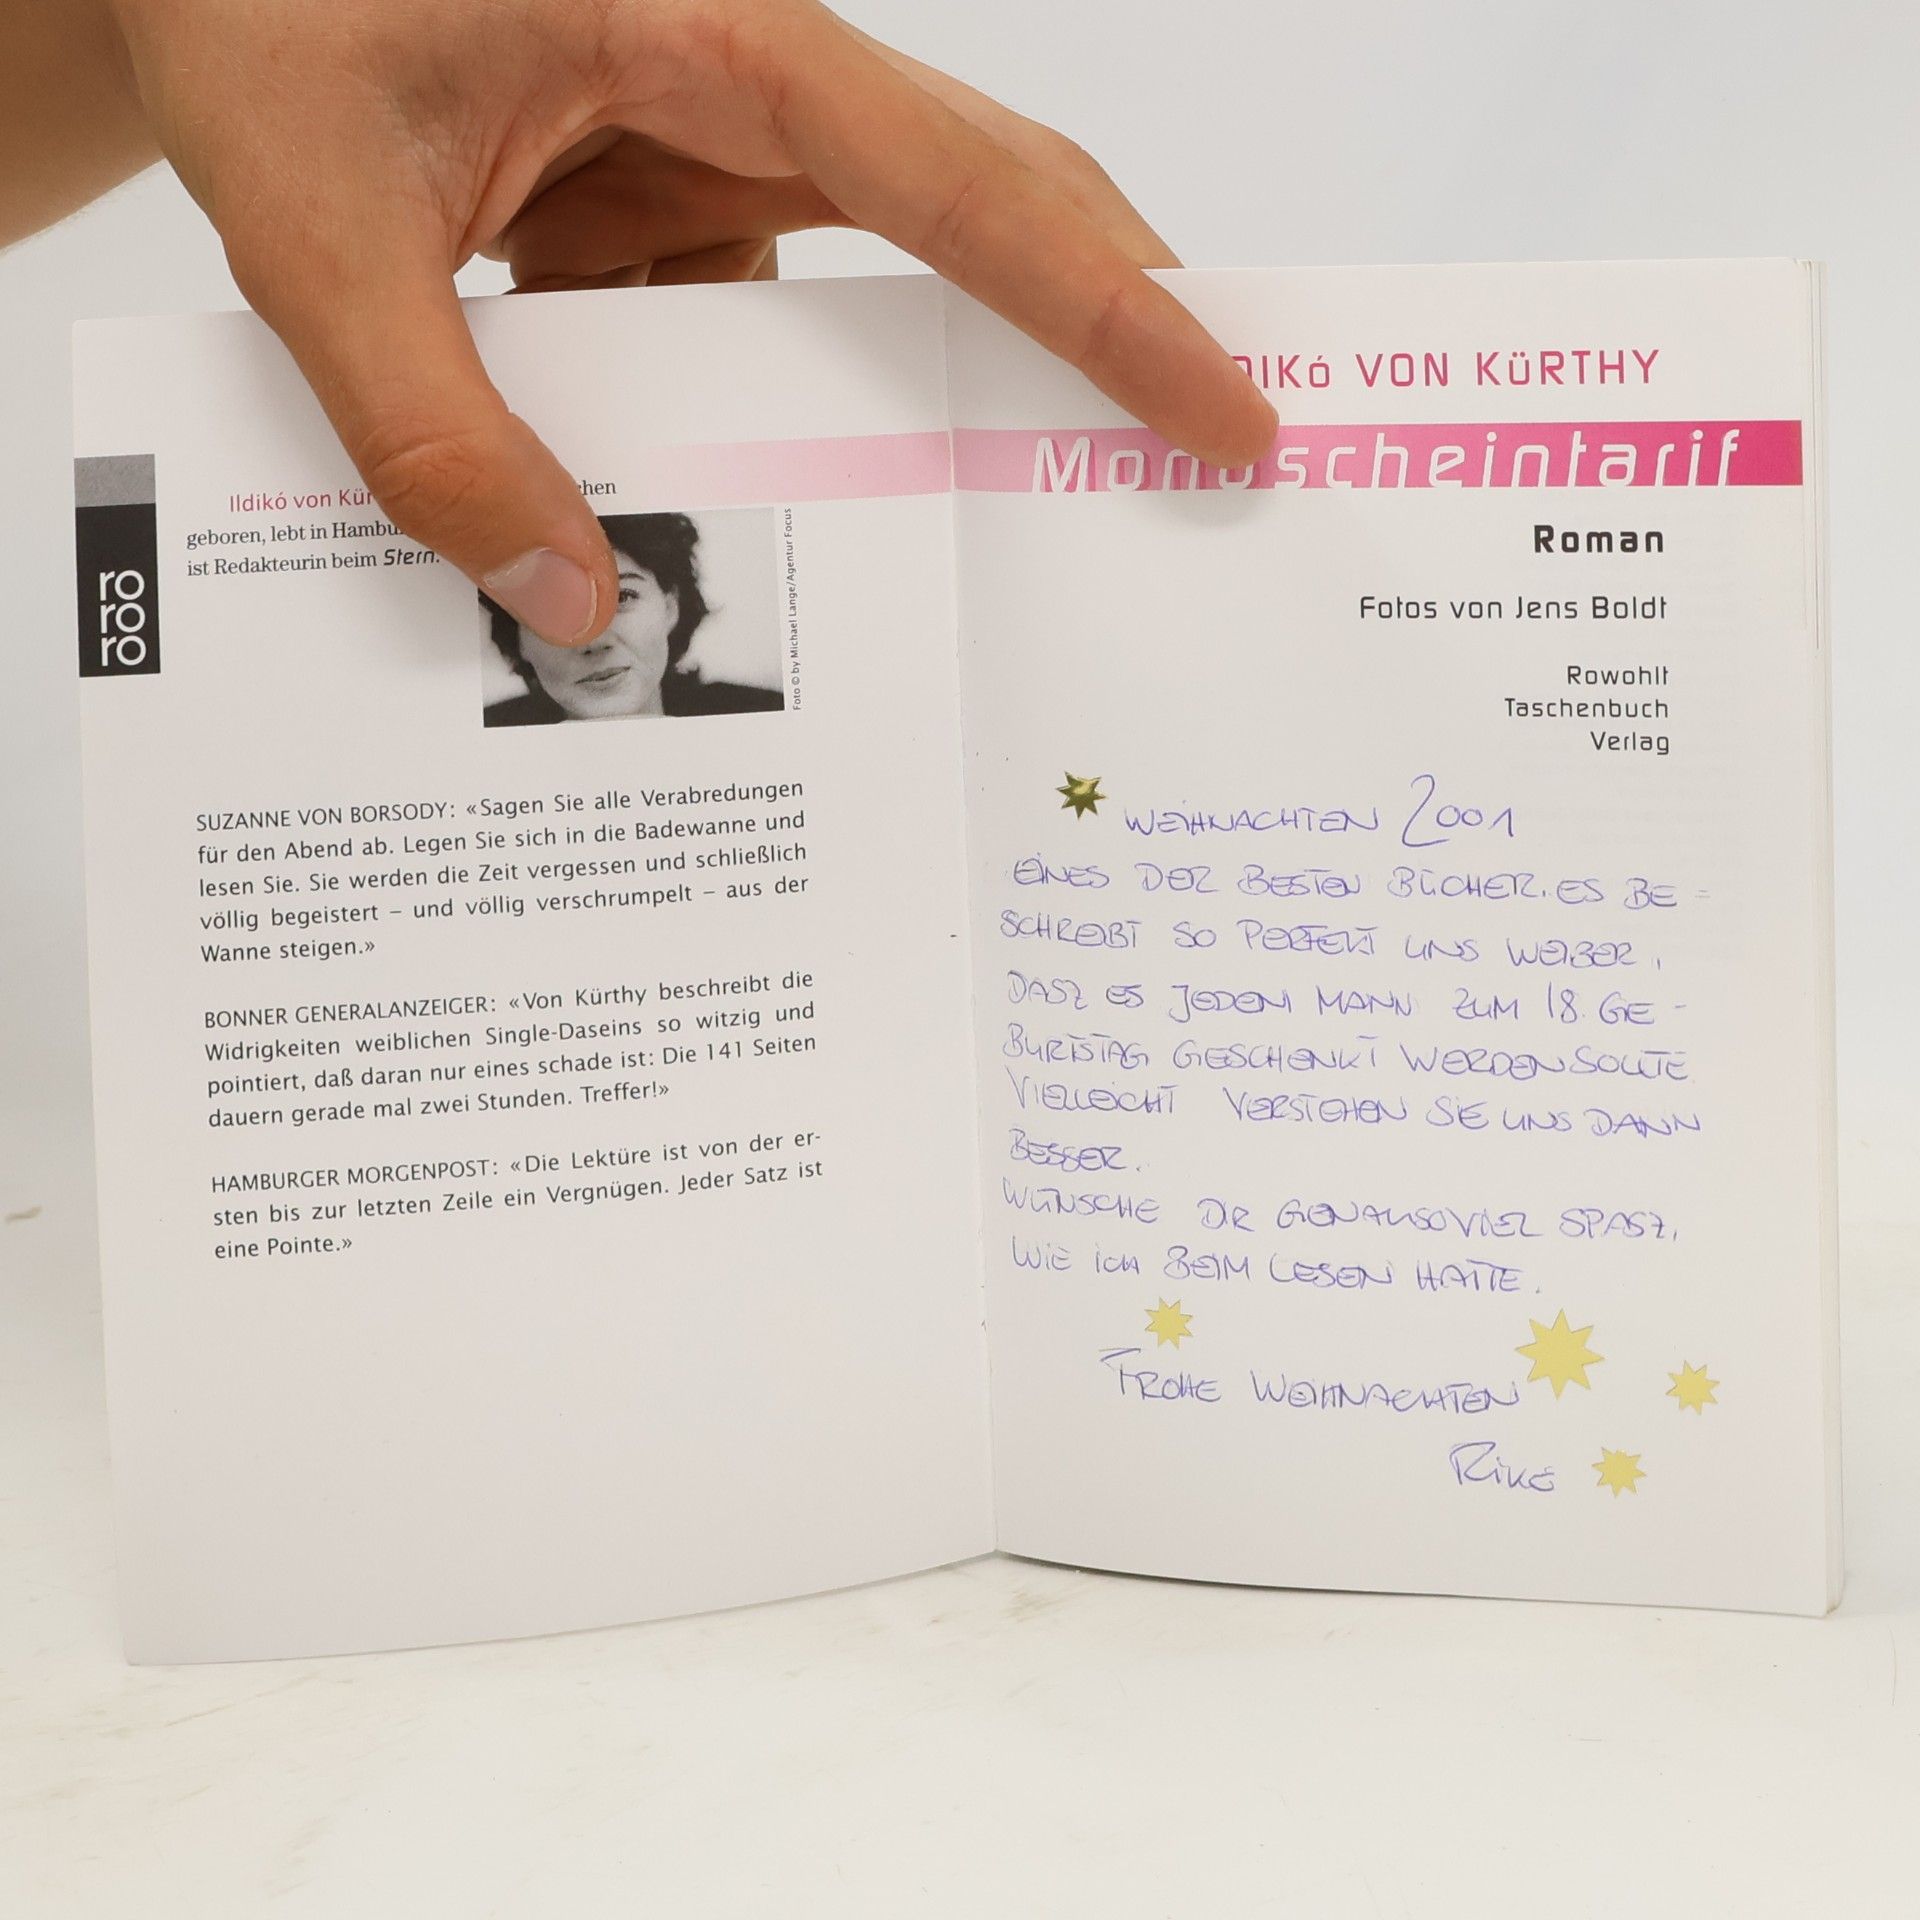 Ildikó von Kür
chen
geboren, lebt in Hambu
ist Redakteurin beim Stern.
Foto © by Michael Lange/Agentur Focus
ro
ro
ro
SUZANNE VON BORSODY: «Sagen Sie alle Verabredungen
für den Abend ab. Legen Sie sich in die Badewanne und
lesen Sie. Sie werden die Zeit vergessen und schließlich
völlig begeistert – und völlig verschrumpelt – aus der
Wanne steigen.»
BONNER GENERALANZEIGER: «Von Kürthy beschreibt die
Widrigkeiten weiblichen Single-Daseins so witzig und
pointiert, daß daran nur eines schade ist: Die 141 Seiten
dauern gerade mal zwei Stunden. Treffer!»
HAMBURGER MORGENPOST: «Die Lektüre ist von der er-
sten bis zur letzten Zeile ein Vergnügen. Jeder Satz ist
eine Pointe.»
DIKó VON KÜRTHY
Mondscheintarif
Roman
Fotos von Jens Boldt
Rowohlt
Taschenbuch
Verlag
WEIHNACHTEN 2001
EINES DER BESTEN BÜCHER. ES BE =
SCHREIBT SO PERFEKT UNS WEIBER,
DASZ ES JEDEM MANN ZUM 18. GE -
BURTSTAG GESCHENKT WERDEN SOLLTE
VIELLEICHT VERSTEHEN SIE UNS DANN
BESSER.
WÜNSCHE DIR GENAUSOVIEL SPASZ,
WIE ICH BEIM LESEN HATTE.
FROHE WEIHNACHTEN
RIKE